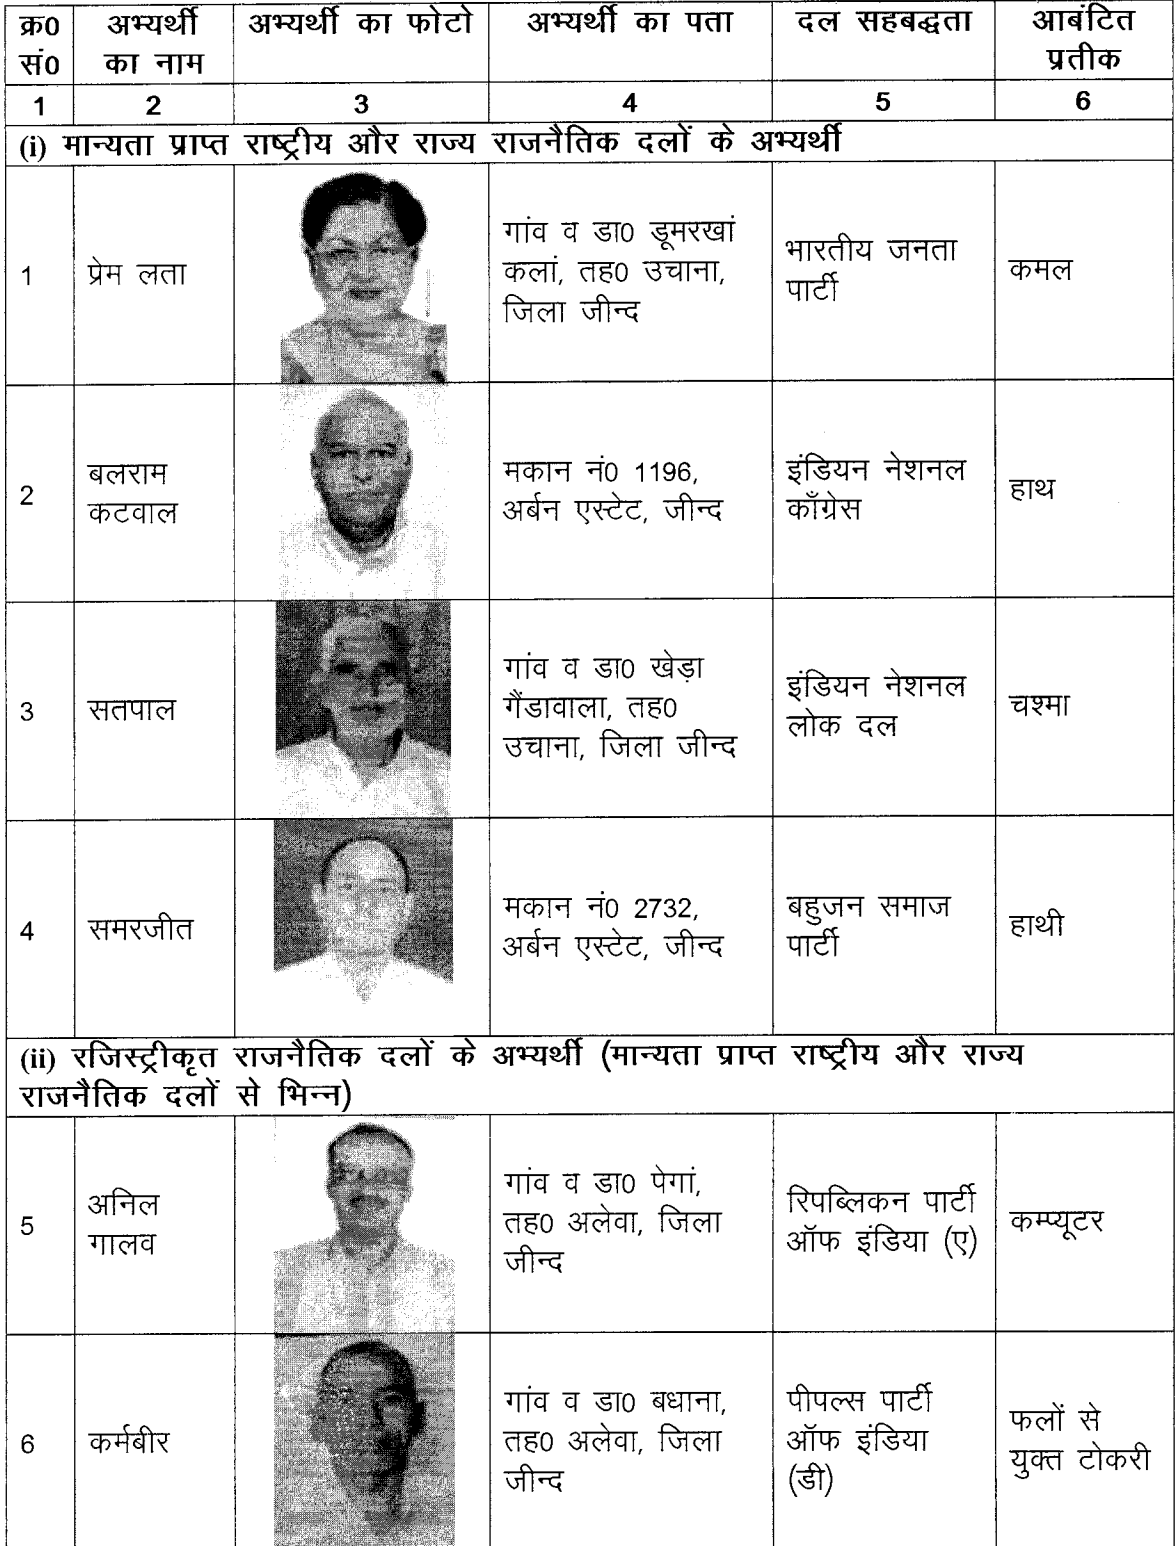 क्र0 अभ्यर्थी अभ्यर्थी का फोटो अभ्यर्थी का पता दल सहबद्धता आबंटित
सं0 का नाम प्रतीक
1 2 3 4 5 6
(i) मान्यता प्राप्त राष्ट्रीय और राज्य राजनैतिक दलों के अभ्यर्थी
1
प्रेम लता
गांव व डा0 डूमरखां
कलां, तह0 उचाना,
जिला जीन्द
भारतीय जनता
पार्टी
कमल
2
बलराम
कटवाल
मकान नं0 1196,
अर्बन एस्टेट, जीन्द
इंडियन नेशनल
काँग्रेस
हाथ
3
सतपाल
गांव व डा0 खेड़ा
गैंडावाला, तह0
उचाना, जिला जीन्द
इंडियन नेशनल
लोक दल
चश्मा
4
समरजीत
मकान नं0 2732,
अर्बन एस्टेट, जीन्द
बहुजन समाज
पार्टी
हाथी
(ii) रजिस्ट्रीकृत राजनैतिक दलों के अभ्यर्थी (मान्यता प्राप्त राष्ट्रीय और राज्य
राजनैतिक दलों से भिन्न)
5
अनिल
गालव
गांव व डा0 पेगां,
तह0 अलेवा, जिला
जीन्द
रिपब्लिकन पार्टी
ऑफ इंडिया (ए)
कम्प्यूटर
6
कर्मबीर
गांव व डा0 बधाना,
तह0 अलेवा, जिला
जीन्द
पीपल्स पार्टी
ऑफ इंडिया
(डी)
फलों से
युक्त टोकरी